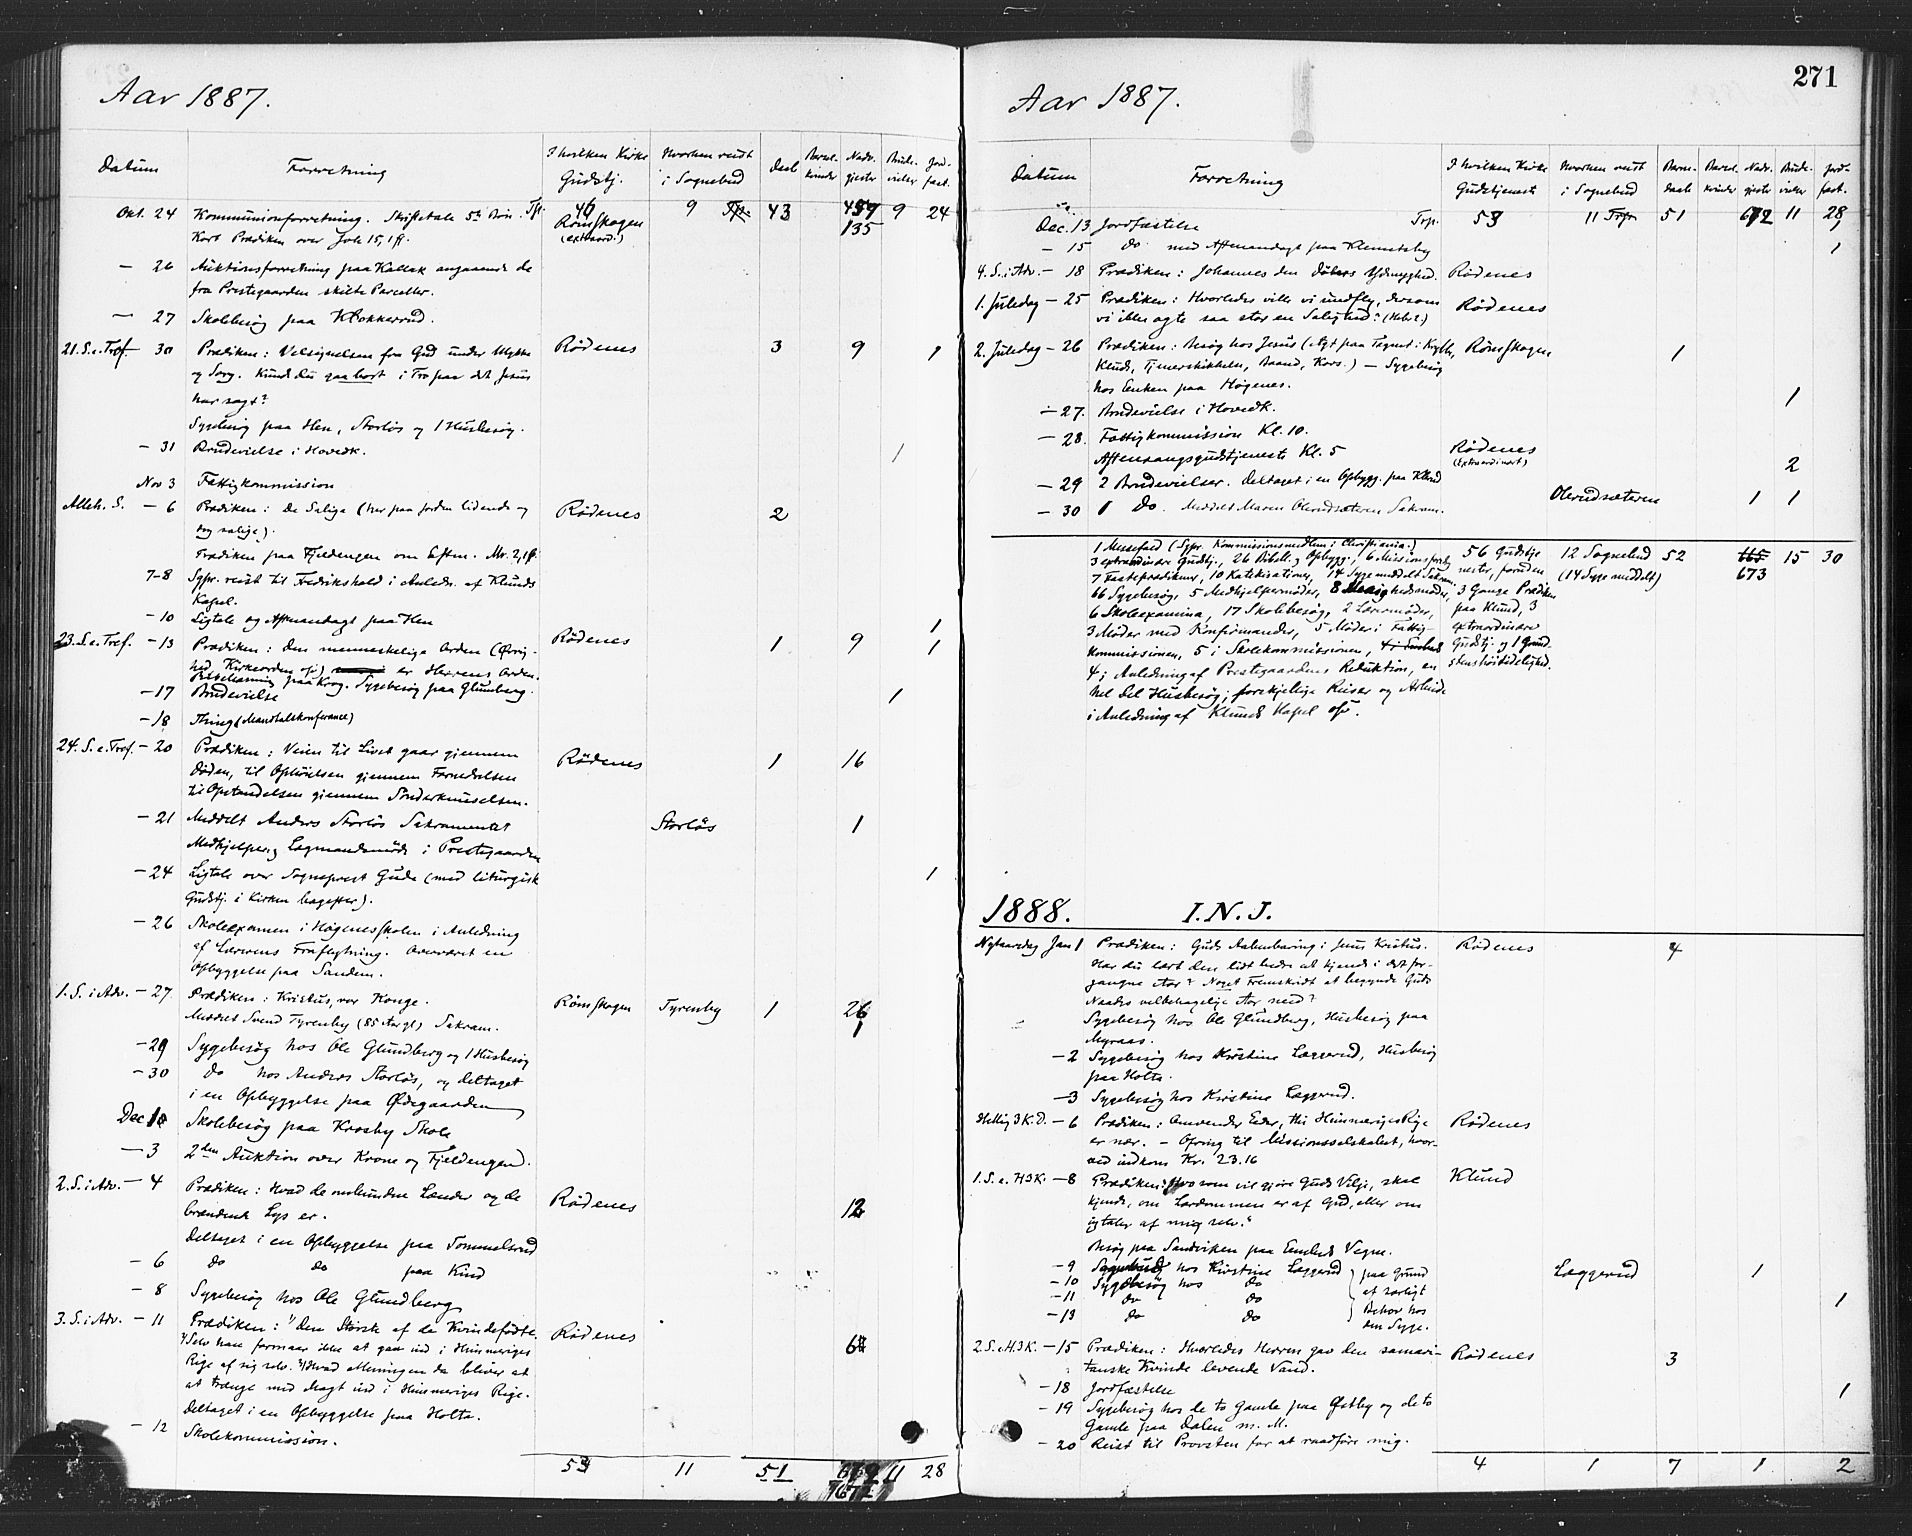 Aar 1887.
Datum
Forretning
I hvilken Kirke Gudstj.
Hvorhen reist i Sognebud
Daab
Barsel-kvinder
Nadv. gjester
Brude-vielser
Jord-fæst.
Okt. 24 Kommunionforretning. Skriftetale 5te Bøn. Tsp. Rømskogen 9 Tsp. 43 9 24
Kort Prædiken over Joh 15,1 ff. (extraord.) 135
— 26 Auktionsforretning paa Kallak angaaende de
fra Prestegaarden skilte Parceller.
— 27 Skolebesøg paa Klokkerrud.
21. S. e. Tref. 30 Prædiken: Velsignelsen fra Gud under Ulykke Rødenes 3 9 1
og Sorg. Kunde du gaa bort i Tro paa det Jesus
har sagt?
Sygebesøg paa Hen, Storløs og 1 Husbesøg.
— 31 Brudevielse i Hovedk. 1
Nov 3 Fattigkommission
Alleh. S. — 6 Prædiken: De Salige (her paa Jorden lidende og Rødenes 2
dog salige).
Prædiken paa Fjeldengen om Eftm. Mr. 2,1 ff.
7-8 Sgpr. reist til Fredrikshald i Anledn. af Klunds
Kapel.
— 10 Ligtale og Aftenandagt paa Hen 1
23. S. e. Tref. — 13 Prædiken: Den menneskelige Orden (Øvrig- Rødenes 1 9 1
hed, Kirkeorden osv) er Herrens Orden.
paa Krog. Sygebesøg paa Glundberg.
— 17 Brudevielse 1
— 18 Thing (Mandtalskonferance)
24. S. e. Tref. — 20 Prædiken: Veien til Livet gaar gjennem Rødenes 1 16
Døden, til Ophøielsen gjennem Fornedrelsen
til Opstandelsen gjennem Sønderknuselsen.
— 21 Meddelt Anders Storløs Sakramentet Storløs 1
Medhjelper og Lagmandsmøde i Prestegaarden
— 24 Ligtale over Sogneprest Gude (med liturgisk 1
Gudstj. i Kirken bagefter).
— 26 Skoleexamen i Høgenesskolen i Anledning
af Lærerens Fraflytning. Overværet en
Opbyggelse paa Sandem.
1. S. i Adv. — 27 Prædiken: Kristus, vor Konge. Rømskogen Tyrenby 1 26
Meddelt Svend Tyrenby (85 Aar gl) Sakram. 1
— 29 Sygebesøg hos Ole Glundberg og 1 Husbesøg
— 30 Do hos Anders Storløs, og deltaget
i en Opbyggelse paa Ødegaarden
Dec 1 Skolebesøg paa Krosby Skole
— 3 2den Auktion over Krone og Fjeldengen.
2. S. i Adv. — 4 Prædiken: Hvad de ombundne Lænder og de Rødenes 12
brændende Lys er.
Deltaget i en Opbyggelse paa Tommelsrud
— 6 Do Do paa Kind
— 8 Sygebesøg hos Ole Glundberg
3. S. i Adv. — 11 Prædiken: 1) Den Største af de Kvindefødte. Rødenes 6
2) Selv han formaar ikke at gaa ind i Himmeriges
Rige af sig selv. 3) Hvad Meningen da bliver at
at trænge med Magt ind i Himmeriges Rige.
Deltaget i en Opbyggelse paa Holta.
— 12 Skolekommission.
53 11 51 11 28
271
Aar 1887.
Datum
Forretning
I hvilken Kirke Gudstjeneste
Hvorhen reist i Sognebud
Barne-daab
Barsel-kvinder
Nadv. gjester
Brude-vielser
Jord-fæst.
Dec. 13 Jordfæstelse Trsp. 53 11 Trsp 51 672 11 28
— 15 Do med Aftenandagt paa Klemetsby 1
4. S. i Adv. — 18 Prædiken: Johannes den Døbers Ydmyghed. Rødenes
1. Juledag — 25 Prædiken: Hvorledes ville vi undfly, dersom Rødenes
vi ikke agte saa stor en Salighed? (Hebr 2.)
2. Juledag — 26 Prædiken: Besøg hos Jesus (Agt paa Tegnet: Krybbe, Rømskogen 1
Klude, Tjenerskikkelse, Baand, Kors.) — Sygebesøg
hos Enken paa Høgenes.
— 27. Brudevielse i Hovedk. 1
— 28. Fattigkommission Kl. 10.
Aftensangsgudstjeneste Kl. 5 Rødenes (Extraordinært)
— 29 2 Brudevielser. Deltaget i en Opbygg. paa Klund 2
— 30 1 Do. Meddelt Maren Olerudsæteren Sakram. Olerudsæteren 1 1
1 Messefald (Sgpr. Kommissionsmedlem i Christiania.) 56 Gudstje- 12 Sognebud 52 665 15 30
3 extraordinære Gudstj., 26 Bibell. og Opbygg., 6 Missionsforedr. nester, foruden (14 Syge meddelt) 673
7 Fasteprædikener, 10 Katekisationer, 14 Syge meddelt Sakram. 3 Gange Prædiken
66 Sygebesøg, 5 Medhjelpermøder, 8 Menighedsmøder, paa Klund, 3
6 Skoleexamina, 17 Skolebesøg, 2 Lærermøder, extraordinære
3 Møder med Konfirmander, 5 Møder i Fattig- Gudstj. og 1 Grund-
kommissionen, 5 i Skolekommissionen, stenshøitidelighed.
4 i Anledning af Prestegaardens Reduktion, en
hel Del Husbesøg; forskjellige Reiser og Arbeide
i Anledning af Klunds Kapel osv.
1888. I.N.J.
Nytaarsdag Jan 1 Prædiken: Guds Aabenbaring i Jesus Kristus. Rødenes 4
Har du lært den lidt bedre at kjende i det for-
gangne Aar? Noget Fremskridt at begynde Guds
Naades velbehagelige Aar med?
Sygebesøg hos Ole Glundberg, Husbesøg paa
Myraas.
— 2 Sygebesøg hos Kristine Læggerud, Husbesøg
paa Holta.
— 3 Sygebesøg hos Kirstine Læggerud.
Hellig 3 K. D. — 6 Prædiken: Omvender Eder, thi Himmeriges Rige Rødenes
er nær. — Ofring til Missionsselskabet, hvor-
ved indkom Kr. 23.16
1. S. e. H3K. — 8 Prædiken: "Hvo som vil gjøre Guds Vilje, skal Klund
kjende, om Lærdommen er af Gud, eller om
jeg taler af mig selv."
Besøg paa Sandviken paa Embeds Vegne.
— 9 Sognebud hos Kirstine Læggerud paa Grund Læggerud 1
— 10 Sygebesøg hos Do af særligt
— 11 Do Do Behov hos 1
— 13 Do Do den Syge.
2 S. e. H.3K. — 15 Prædiken: Hvorledes Herren gav den samari- Rødenes 3
tanske Kvinde levende Vand.
— 18 Jordfæstelse 1
— 19 Sygebesøg hos de to Gamle paa Østby og de to
Gamle paa Dalen m. M.
— 20 Reist til Provsten for at raadføre mig.
4 1 7 1 2